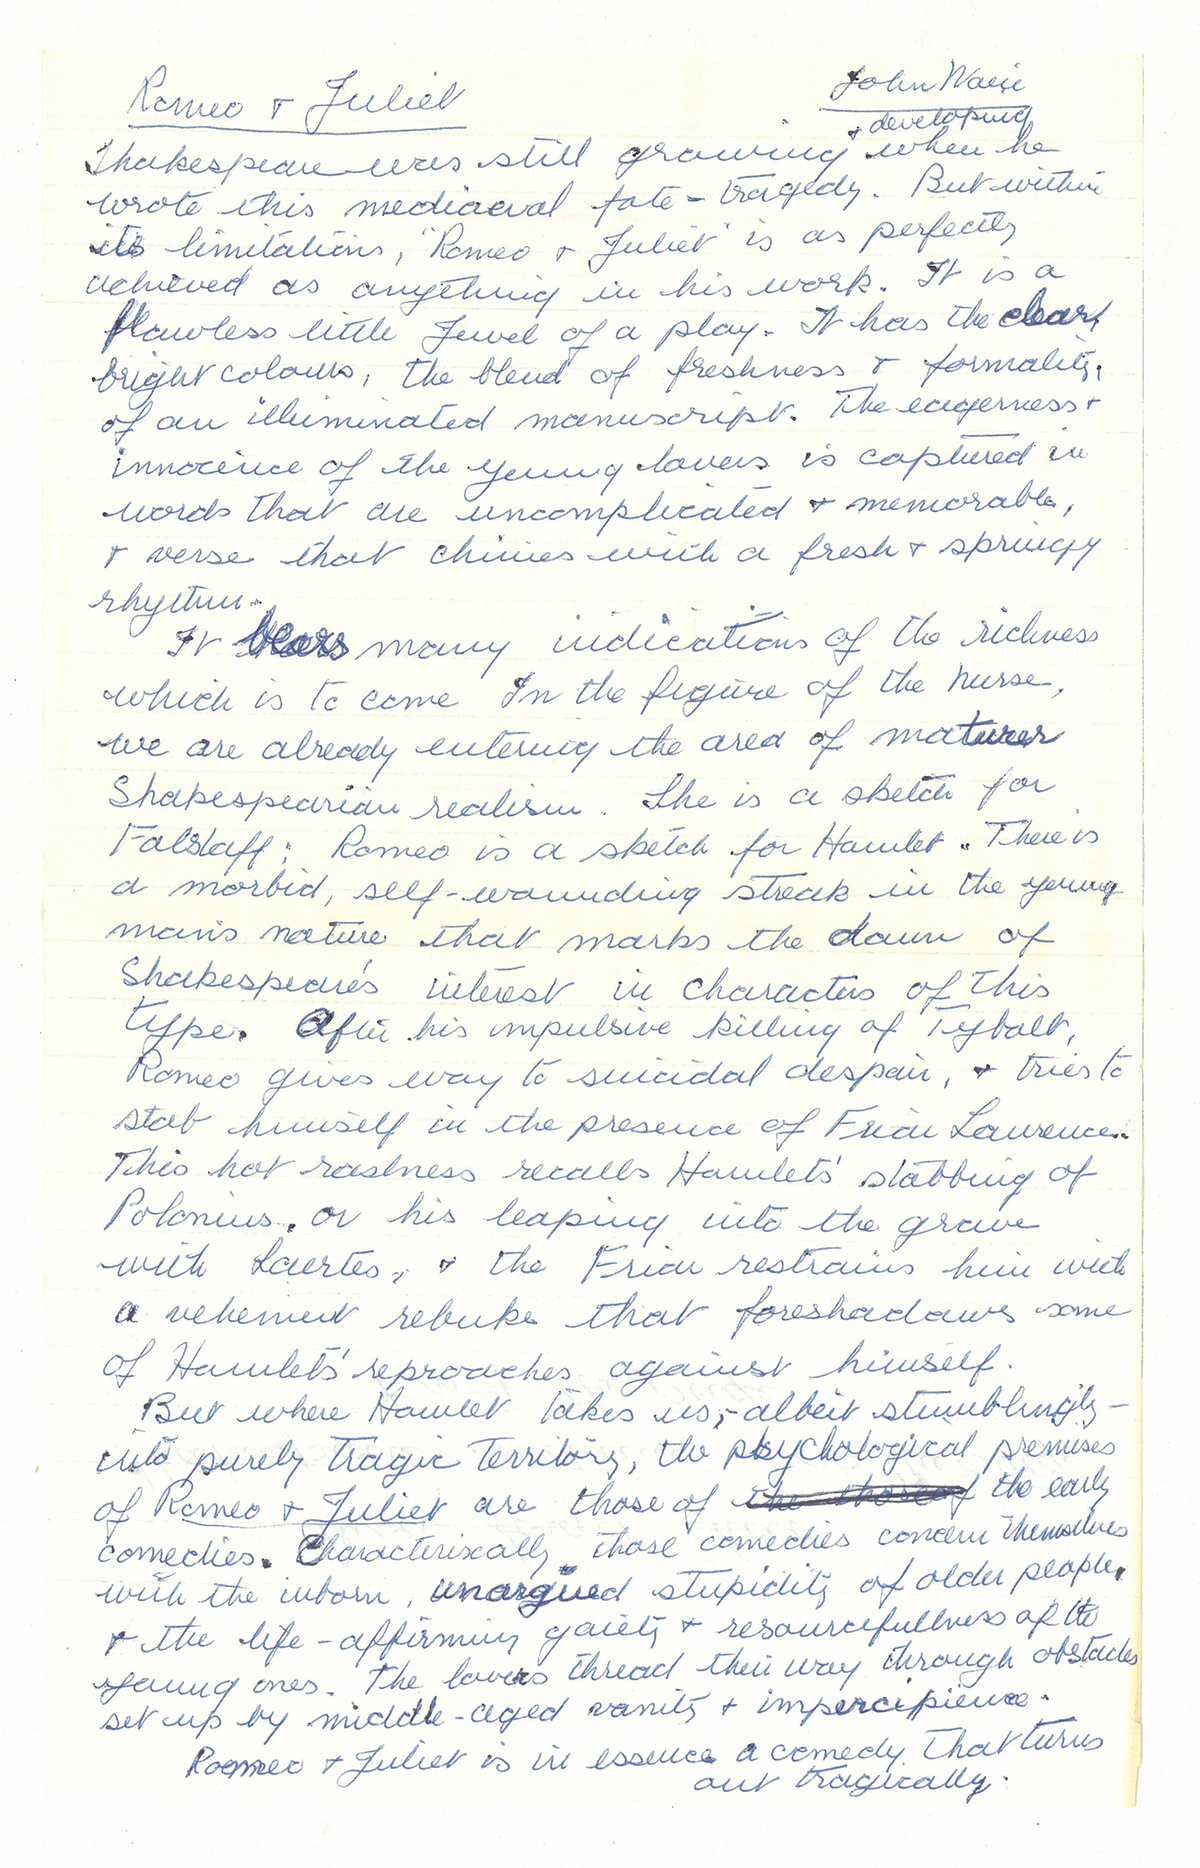 Romeo & Juliet
John Wain
& developing
Shakespeare was still growing when he
wrote this mediaeval fate-tragedy. But within
its limitations, "Romeo & Juliet" is as perfectly
achieved as anything in his work. It is a
flawless little Jewel of a play. It has the clear,
bright colours, the blend of freshness & formality,
of an illuminated manuscript. The eagerness &
innocence of the young lovers is captured in
words that are uncomplicated & memorable,
& verse that chimes with a fresh & springy
rhythm.
It bears many indications of the richness
which is to come In the figure of the Nurse,
we are already entering the area of maturer
Shakespearian realism. She is a sketch for
Falstaff; Romeo is a sketch for Hamlet. There is
a morbid, self-wounding streak in the young
man's nature that marks the dawn of
Shakespeare's interest in characters of this
type. After his impulsive killing of Tybalt,
Romeo gives way to suicidal despair, & tries to
stab himself in the presence of Friar Laurence.
This hot rashness recalls Hamlets' stabbing of
Polonius, or his leaping into the grave
with Laertes, & the Friar restrains him with
a vehement rebuke that foreshadows some
of Hamlets' reproaches against himself.
But where Hamlet takes us, - albeit stumblingly -
into purely tragic territory, the psychological premises
of Romeo & Juliet are those of the those of the early
comedies. Characteristically those comedies concern themselves
with the inborn, unargued stupidity of older people,
& the life-affirming gaiety & resourcefullness of the
young ones. The lovers thread their way through obstacles
set up by middle-aged vanity & impercipience.
Romeo & Juliet is in essence a comedy that turns
out tragically.